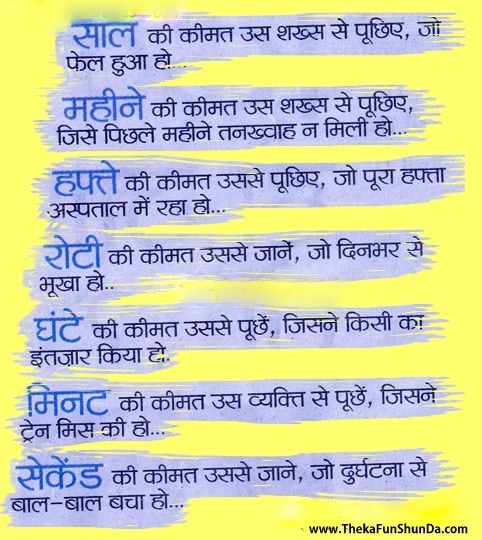 साल की कीमत उस शख्स से पूछिए, जो
फेल हुआ हो...
महीने की कीमत उस शख्स से पूछिए,
जिसे पिछले महीने तनख्वाह न मिली हो...
हफ्ते की कीमत उससे पूछिए, जो पूरा हफ्ता
अस्पताल में रहा हो...
रोटी की कीमत उससे जानें, जो दिनभर से
भूखा हो..
घंटे की कीमत उससे पूछें, जिसने किसी का
इंतज़ार किया हो.
मिनट की कीमत उस व्यक्ति से पूछें, जिसने
ट्रेन मिस की हो...
सेकेंड की कीमत उससे जाने, जो दुर्घटना से
बाल-बाल बचा हो...
www.ThekaFunShunDa.com